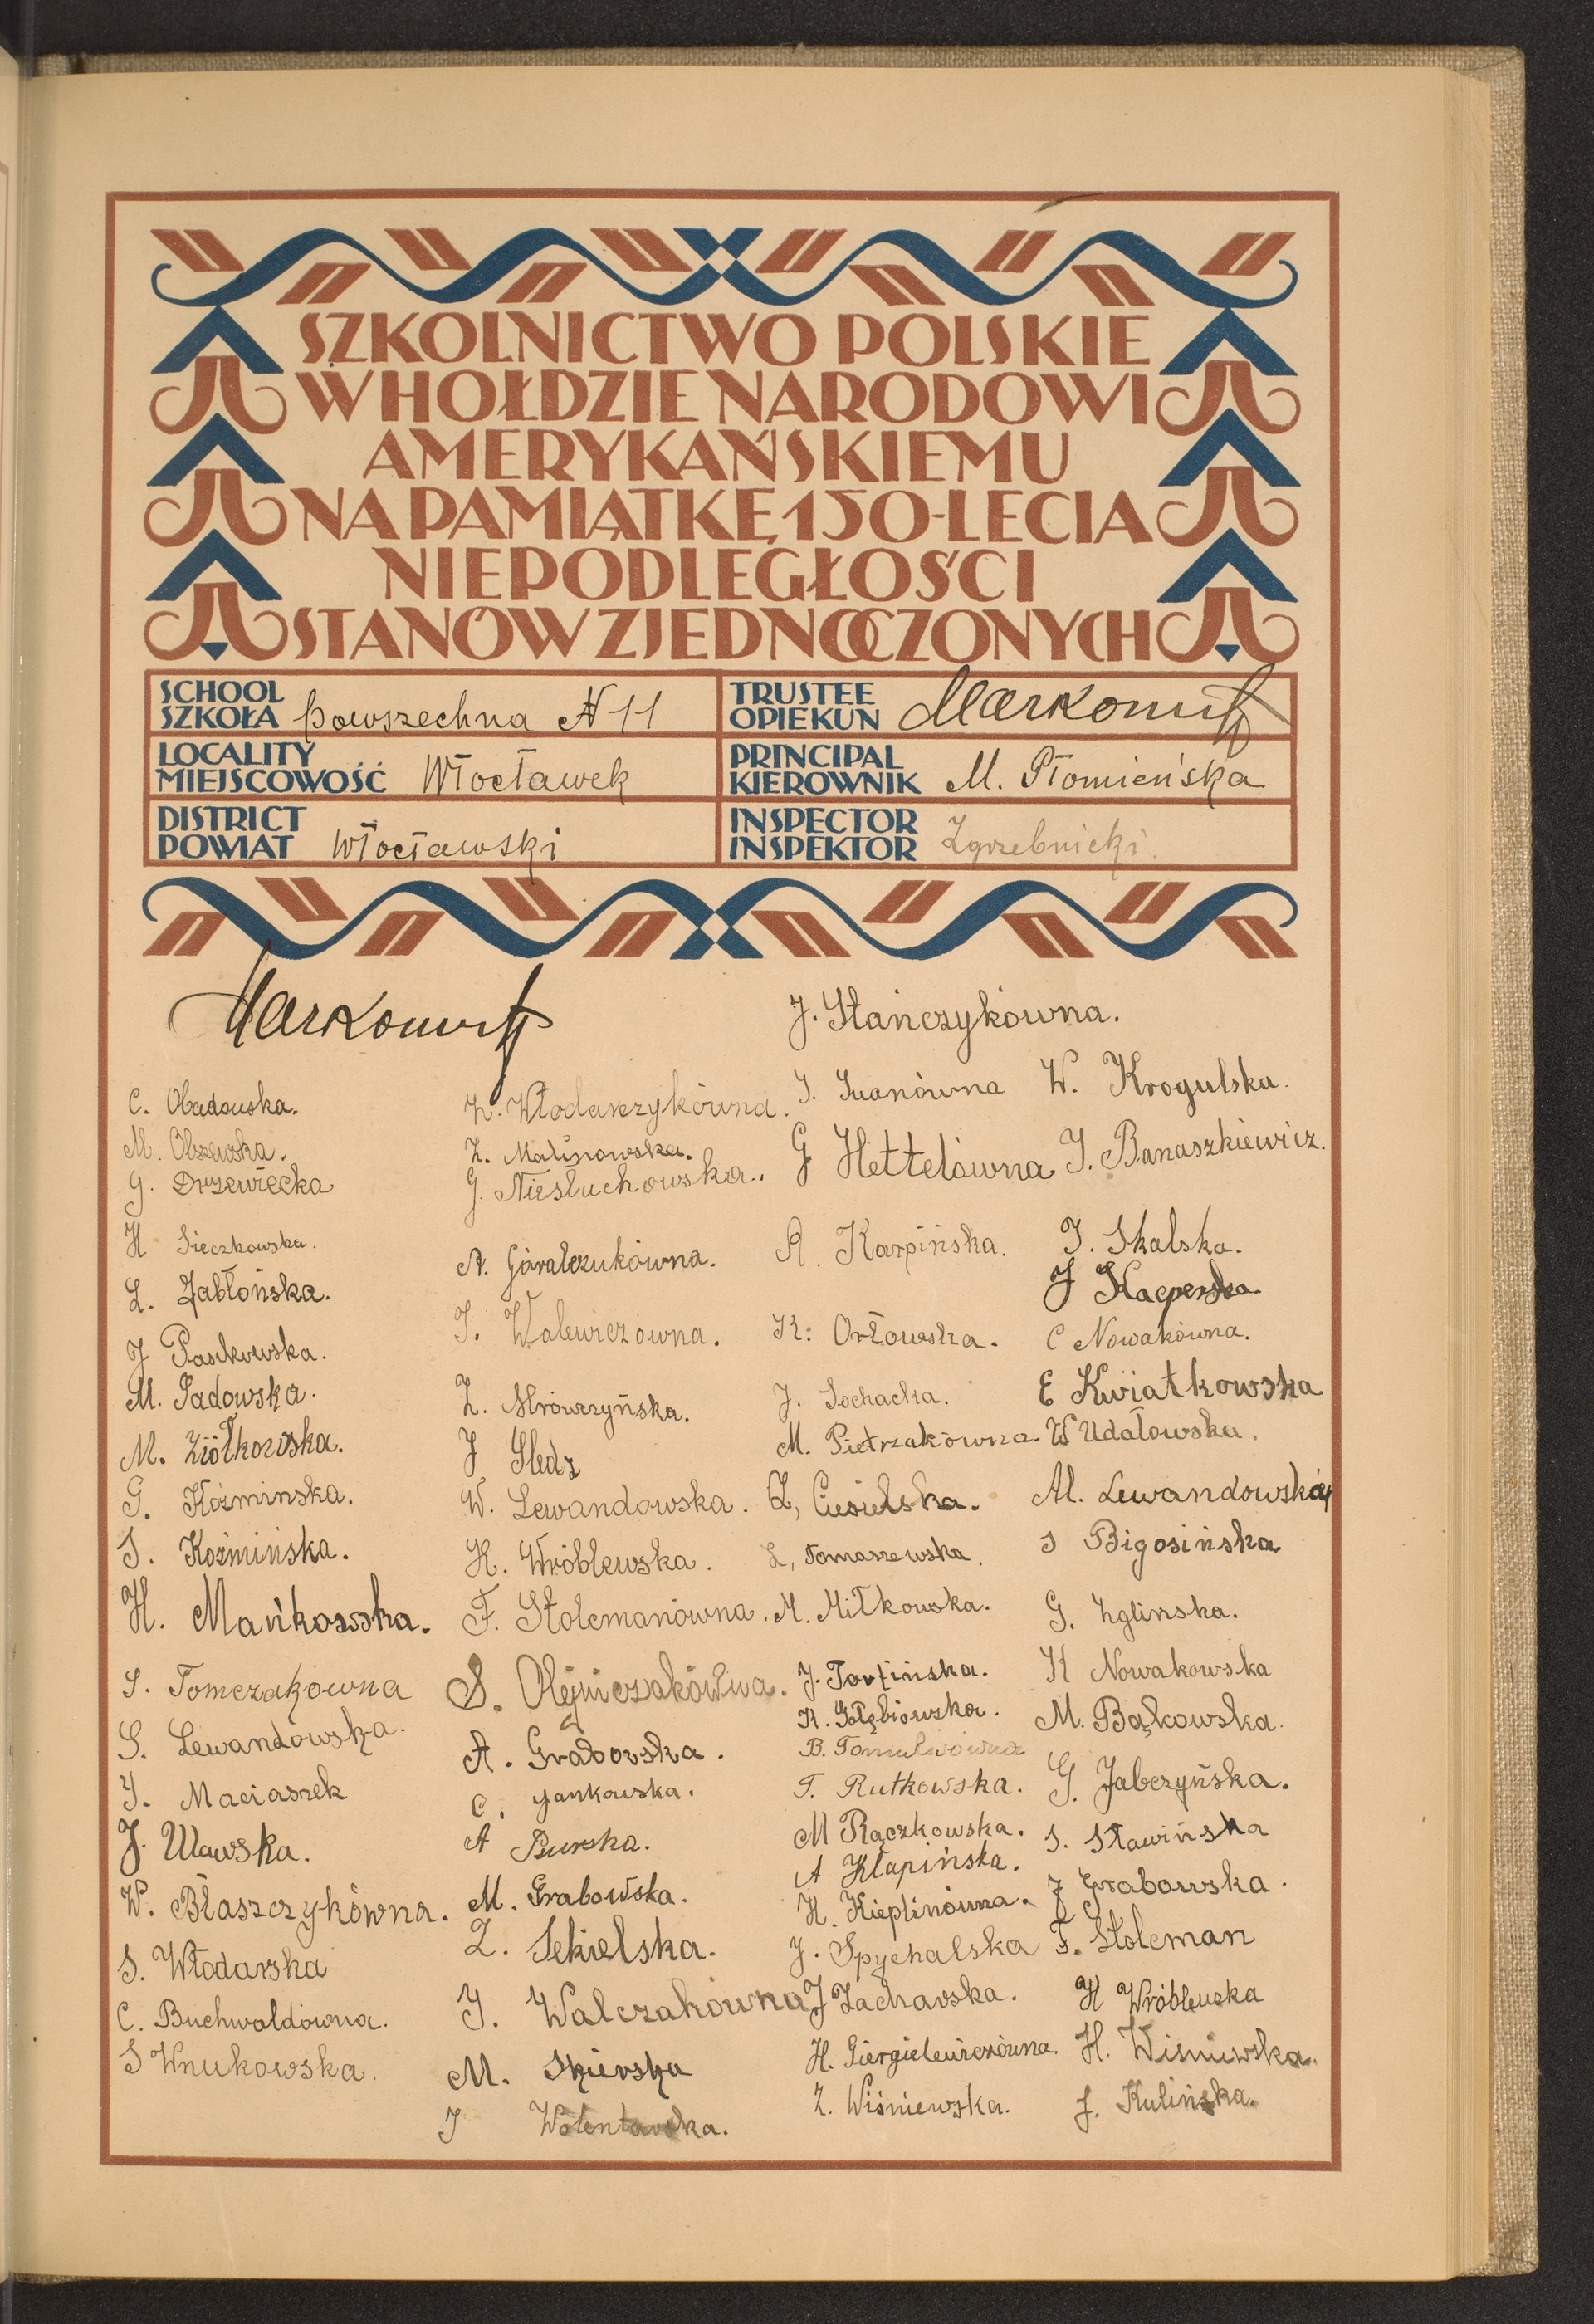 SZKOLNICTWO POLSKIE
W HOŁDZIE NARODOWI
AMERYKAŃSKIEMU
NA PAMIĄTKĘ 150-LECIA
NIEPODLEGŁOŚCI
STANÓW ZJEDNOCZONYCH
SCHOOL
SZKOŁA powszechna N 11
TRUSTEE
OPIEKUN
LOCALITY
MIEJSCOWOŚĆ Włocławek
PRINCIPAL
KIEROWNIK M. Płomieńska
DISTRICT
POWIAT włocławski
INSPECTOR
INSPEKTOR Zgrzebnicki.
C. Obadowska.
M. Olszewska.
G. Drzewiecka
H Sieczkowska.
L. Jabłońska.
J Paszkowska.
M. Sadowska.
M. Ziółkowska.
G. Koźminska.
S. Koźmińska.
H. Mańkowska.
S. Tomczakówna
S. Lewandowska.
J. Maciaszek
J. Uławska.
W. Błaszczykówna.
S. Włodarska
C. Buchwaldówna.
S Wnukowska.
W. Włodarczykówna.
Z. Malinowska.
G. Niesłuchowska.
A. Góralczukówna.
J. Walewiczówna.
Z. Mrówczyńska.
J Śledz
W. Lewandowska.
H. Wróblewska.
F. Stolemanówna.
S. Olejniczakówna.
A. Grabowska.
C. Jankowska.
A Burska.
M. Grabowska.
Z. Sekielska.
J. Walczakówna
M. Skierska
J
J. Stańczykówna.
J. Iwanówna
G Hettelówna
A. Karpińska.
K: Orłowska.
J. Sochacka.
M. Pietrzakówna.
Z, Ciesielska.
L, Tomaszewska.
M. Miłkowska.
J. Tortińska.
K. Gołębiowska.
B.
T. Rutkowska.
M Rączkowska.
A Kłapińska.
H. Kieplinówna.
J. Spychalska
J Zacharska.
H. Giergielewiczówna.
Z. Wiśniewska.
W. Krogulska.
J. Banaszkiewicz.
J. Skalska.
J Kacperska.
C Nowakówna.
E Kwiatkowska
W Udałowska.
M. Lewandowska
S Bigosińska
G. Zglińska.
K Nowakowska
M. Bąkowska.
G. Jabczyńska.
S. Sławińska
J Grabowska.
F. Stoleman
H Wróblewska
H. Wisniewska.
J. Kulińska.